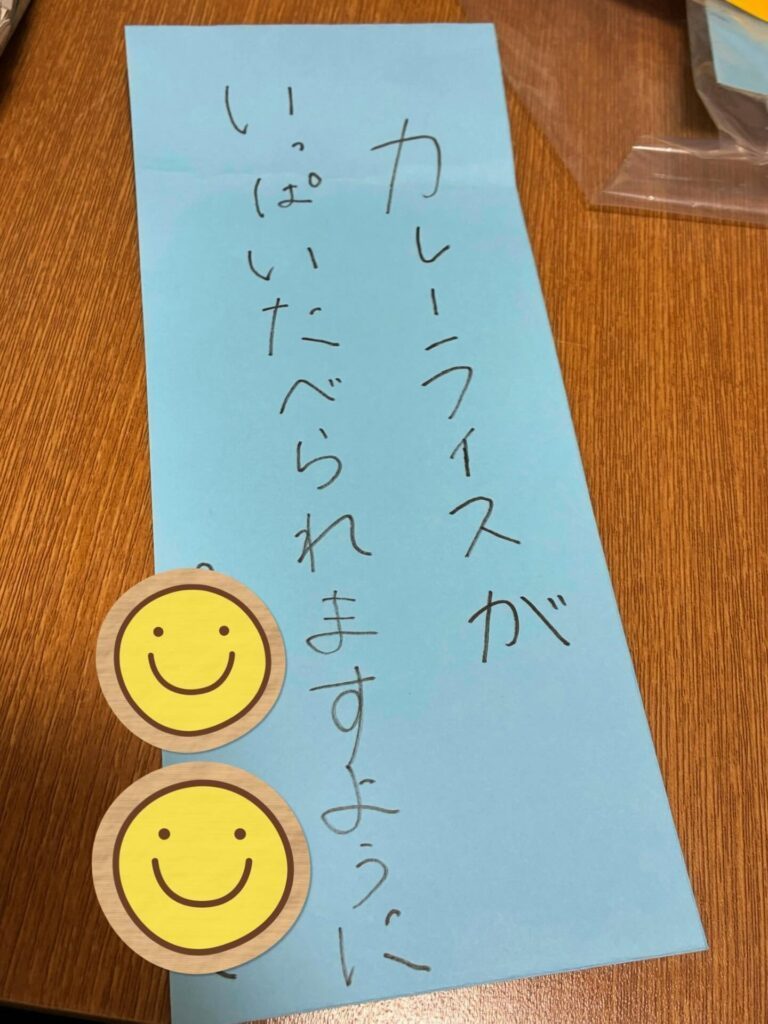 カレーライスが
いっぱいたべられますように